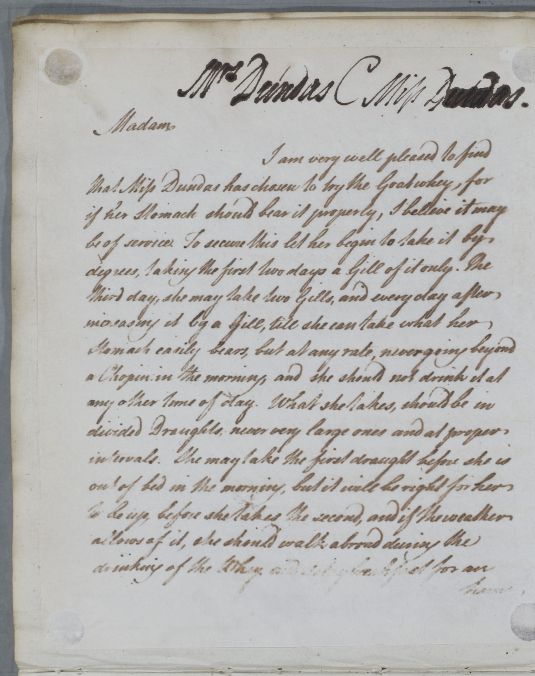 Mrs Dundas C Miss Dundas.
Madam
I am very well pleased to find
that Miss Dundas has chosen to try the Goatwhey, for
if her Stomach should bear it properly, I believe it may
be of service. To secure this let her begin to take it by
degrees, taking the first two days a Gill of it only. The
third day, she may take two Gills, and every day after
increasing it by a Gill, till she can take what her
Stomach easily bears, but at any rate, never going beyond
a Chopin in the morning, and she should not drink it at
any other time of day. What she takes, should be in
divided Draughts, never very large ones and at proper
intervals. She may take the first draught before she is
out of bed in the morning, but it will be right for her
to be up, before she takes the second, and if the weather
allows of it, she should walk abroad during the
drinking of the Whey and breakfast for an
hour